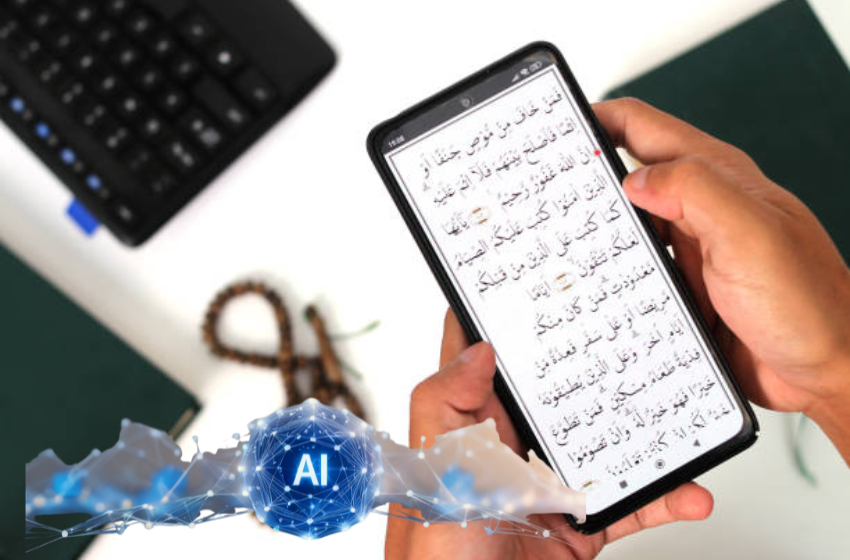 19:08
فَمَنْ خَافَ مِنْ مُوْصٍ جَنَفًا اَوْ
اِثْمًا فَاَصْلَحَ بَيْنَهُمْ فَلَآ اِثْمَ عَلَيْهِ
اِنَّ اللّٰهَ غَفُوْرٌ رَّحِيْمٌ يٰٓاَيُّهَا
الَّذِيْنَ اٰمَنُوْا كُتِبَ عَلَيْكُمُ الصِّيَامُ
كَمَا كُتِبَ عَلَى الَّذِيْنَ مِنْ قَبْلِكُمْ
لَعَلَّكُمْ تَتَّقُوْنَ اَيَّامًا
مَّعْدُوْدٰتٍ فَمَنْ كَانَ مِنْكُمْ
مَّرِيْضًا اَوْ عَلٰى سَفَرٍ فَعِدَّةٌ مِّنْ
اَيَّامٍ اُخَرَ وَعَلَى الَّذِيْنَ يُطِيْقُوْنَهٗ
فِدْيَةٌ طَعَامُ مِسْكِيْنٍ فَمَنْ تَطَوَّعَ
خَيْرًا فَهُوَ خَيْرٌ لَّهٗ وَاَنْ تَصُوْمُوْا
AI